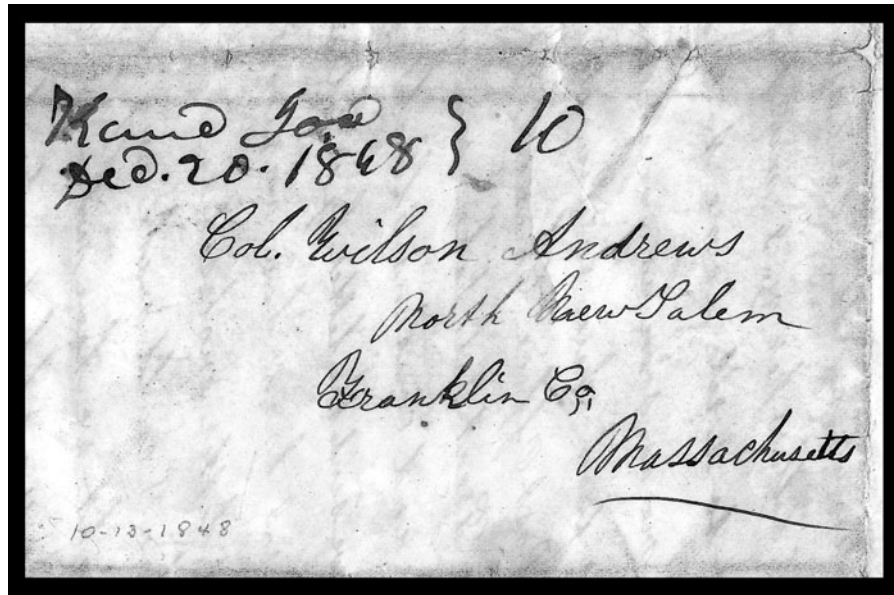 Kane
Dec. 20. 1848 } 10
Col. Wilson Andrews
North New Salem
Franklin Co,
Massachusetts
10-13-1848